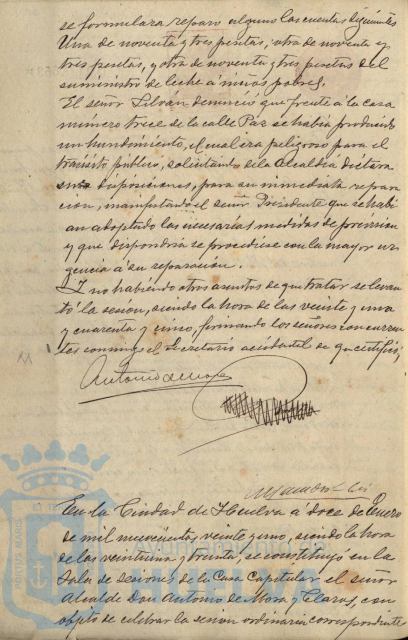 se formulara reparo alguno las cuentas siguientes
Una de noventa y tres pesetas, otra de noventa y
tres pesetas, y otra de noventa y tres pesetas del
suministro de leche á niños pobres.
El señor Silván denunció que frente á la casa
número trece de la calle Paz se había producido
un hundimiento, el cual era peligroso para el
tránsito público, solicitando de la Alcaldía dictara
disposiciones, para su inmediata repara
ción, manifestando el señor Presidente que se habi
an adoptado las necesarias medidas de previsión
y que dispondría se procediese con la mayor ur
gencia á su reparación.
Y no habiendo otros asuntos de que tratar se levan
tó la sesión, siendo la hora de las veinte y una
y cuarenta y cinco, firmando los señores concurren
tes conmigo el Secretario accidental de que certifico;
Antonio de Mora
En la Ciudad de Huelva á doce de Enero
de mil novecientos veinte y uno, siendo la hora
de las veintiuna y treinta, se constituyó en la
Sala de sesiones de la Casa Capitular el señor
Alcalde Don Antonio de Mora y Claros, con
objeto de celebrar la sesión ordinaria correspondiente